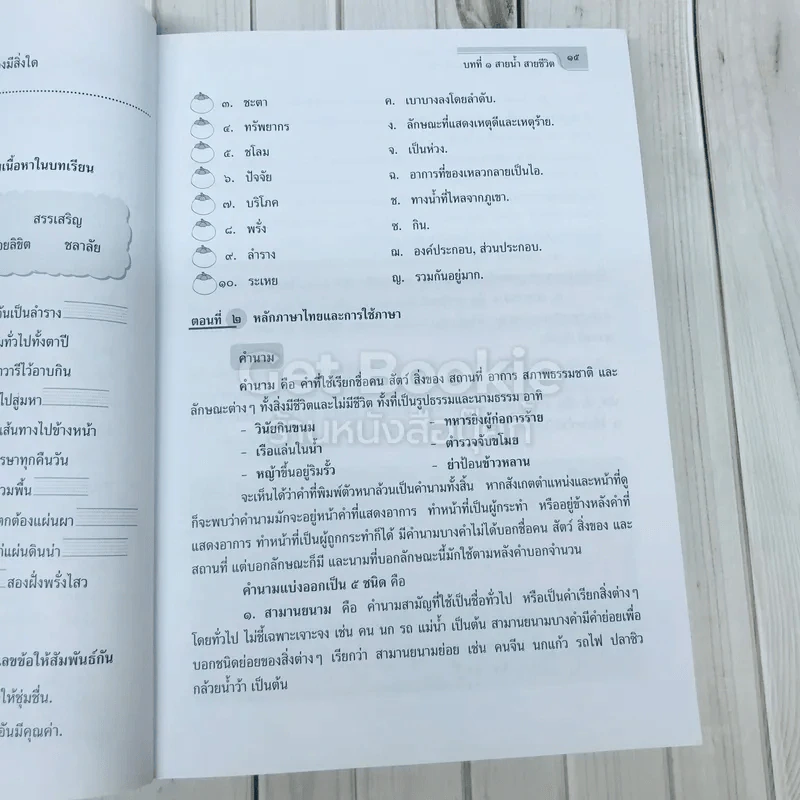 องมีสิ่งใด
นเนื้อหาในบทเรียน
สรรเสริญ
อยลิขิต ชลาลัย
ันเป็นลำราง
มทั่วไปทั้งตาปี
าวารีไว้อาบกิน
ไปสู่มหา
เส้นทางไปข้างหน้า
รษาทุกคืนวัน
วมพื้น
ตกต้องแผ่นผา
ก่แผ่นดินน่า
สองฝั่งพรั่งไสว
เลขข้อให้สัมพันธ์กัน
ให้ชุ่มชื่น.
อันมีคุณค่า.
บทที่ ๑ สายน้ำ สายชีวิต ๑๕
๓. ชะตา ค. เบาบางลงโดยลำดับ.
๔. ทรัพยากร ง. ลักษณะที่แสดงเหตุดีและเหตุร้าย.
๕. ชโลม จ. เป็นห่วง.
๖. ปัจจัย ฉ. อาการที่ของเหลวกลายเป็นไอ.
๗. บริโภค ช. ทางน้ำที่ไหลจากภูเขา.
๘. พรั่ง ซ. กิน.
๙. ลำราง ฌ. องค์ประกอบ, ส่วนประกอบ.
๑๐. ระเหย ญ. รวมกันอยู่มาก.
ตอนที่ ๒ หลักภาษาไทยและการใช้ภาษา
คำนาม
คำนาม คือ คำที่ใช้เรียกชื่อคน สัตว์ สิ่งของ สถานที่ อาการ สภาพธรรมชาติ และ
ลักษณะต่างๆ ทั้งสิ่งมีชีวิตและไม่มีชีวิต ทั้งที่เป็นรูปธรรมและนามธรรม อาทิ
- วินัยกินขนม - ทหารยิงผู้ก่อการร้าย
- เรือแล่นในน้ำ - ตำรวจจับขโมย
- หญ้าขึ้นอยู่ริมรั้ว - ย่าป้อนข้าวหลาน
จะเห็นได้ว่าคำที่พิมพ์ตัวหนาล้วนเป็นคำนามทั้งสิ้น หากสังเกตตำแหน่งและหน้าที่ดู
ก็จะพบว่าคำนามมักจะอยู่หน้าคำที่แสดงอาการ ทำหน้าที่เป็นผู้กระทำ หรืออยู่ข้างหลังคำที่
แสดงอาการ ทำหน้าที่เป็นผู้ถูกกระทำก็ได้ มีคำนามบางคำไม่ได้บอกชื่อคน สัตว์ สิ่งของ และ
สถานที่ แต่บอกลักษณะก็มี และนามที่บอกลักษณะนี้มักใช้ตามหลังคำบอกจำนวน
คำนามแบ่งออกเป็น ๕ ชนิด คือ
๑. สามานยนาม คือ คำนามสามัญที่ใช้เป็นชื่อทั่วไป หรือเป็นคำเรียกสิ่งต่างๆ
โดยทั่วไป ไม่ชี้เฉพาะเจาะจง เช่น คน นก รถ แม่น้ำ เป็นต้น สามานยนามบางคำมีคำย่อยเพื่อ
บอกชนิดย่อยของสิ่งต่างๆ เรียกว่า สามานยนามย่อย เช่น คนจีน นกแก้ว รถไฟ ปลาซิว
กล้วยน้ำว้า เป็นต้น
Get Bookie
ร้านหนังสือกู๊ดบุ๊ค